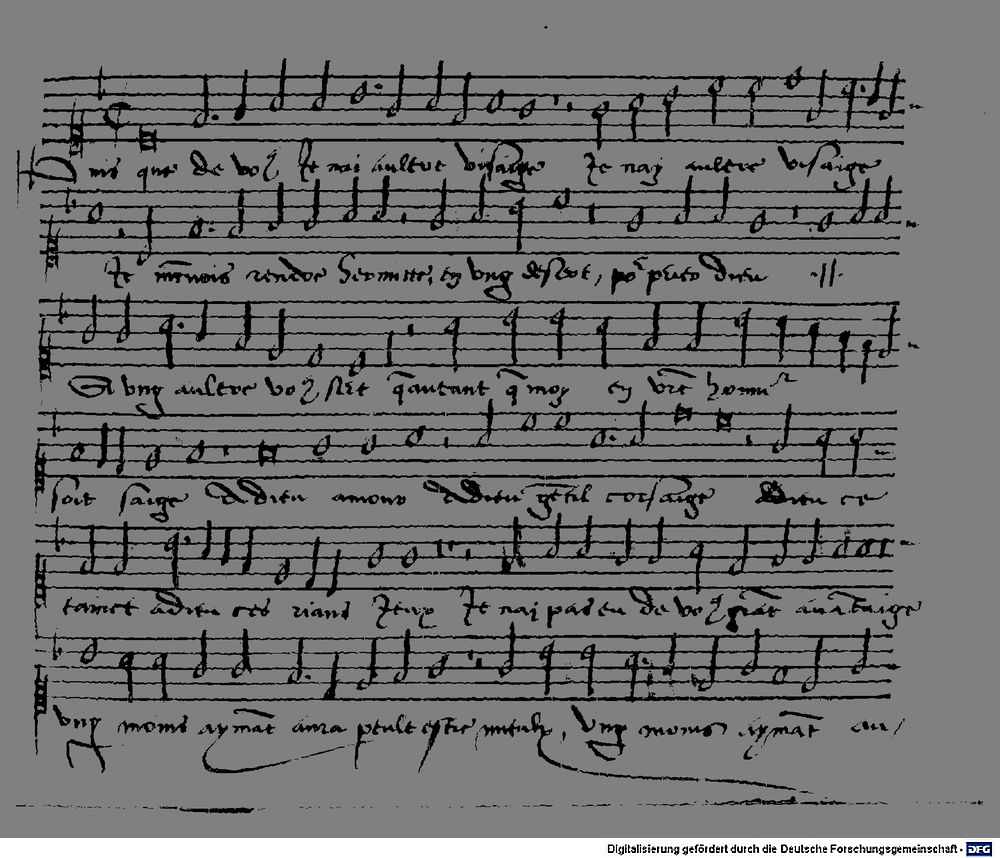 Puis que de voz Je nai aultre visaige Je nay aultre visaige
Je m'en vois rendre hermitte, en ung desert, por prier dieu ·//·
Si ung aultre voz sert q̄ autant q̄ moy en vr̄e honn
soit saige Adieu amour Adieu gētil corsaige Adieu ce
tainct adieu ces rians Jeux Je nai pas eu de voz grāt avātaige
ung moins aymāt aura peult estre mieulx, ung moins aymāt au/
Digitalisierung gefördert durch die Deutsche Forschungsgemeinschaft - DFG